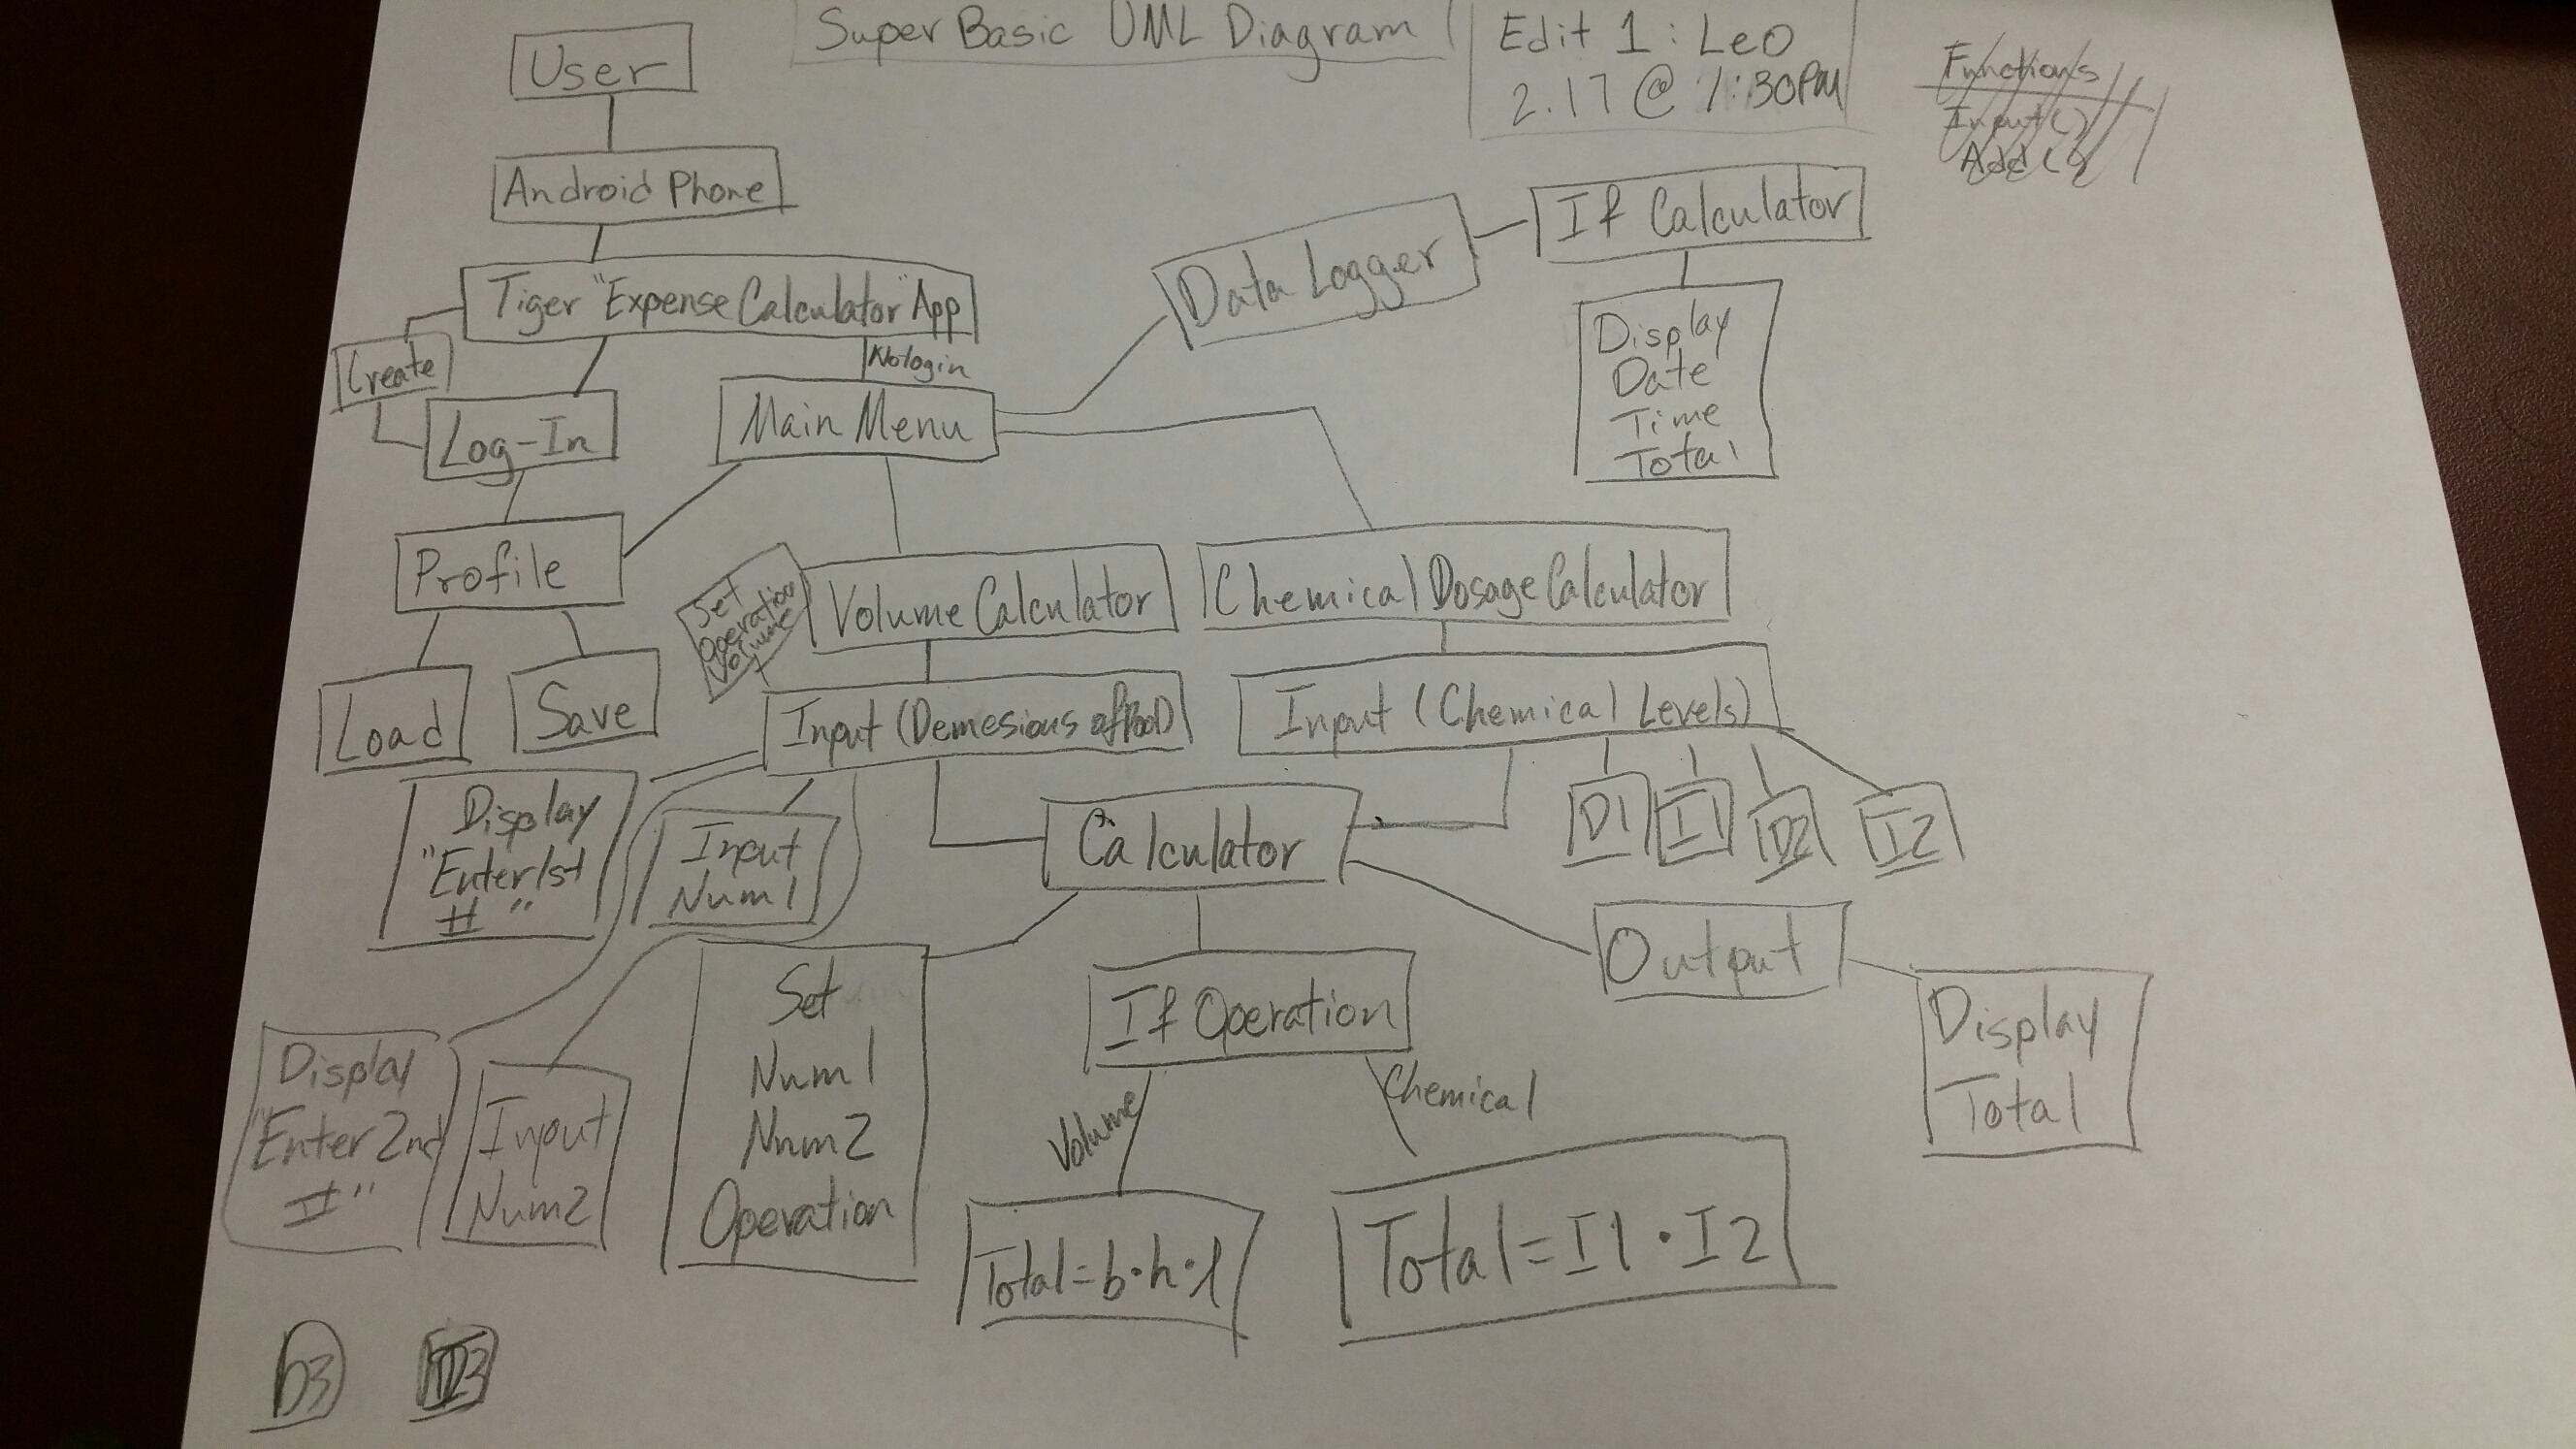 Super Basic UML Diagram
Edit 1: Leo
2.17 @ 1:30PM
Functions
Input()
Add()
User
Android Phone
Tiger "Expense Calculator" App
Create
No login
Log-In
Main Menu
Data Logger
If Calculator
Display
Date
Time
Total
Profile
Load
Save
Set
Operation
Volume
Volume Calculator
Chemical Dosage Calculator
Input (Demesious of Pool)
Input (Chemical Levels)
Display
"Enter 1st
#"
Input
Num1
Calculator
D1
I1
D2
I2
Output
Display
Total
Display
"Enter 2nd
#"
Input
Num2
Set
Num1
Num2
Operation
If Operation
Volume
Chemical
Total=b·h·l
Total=I1·I2
D3